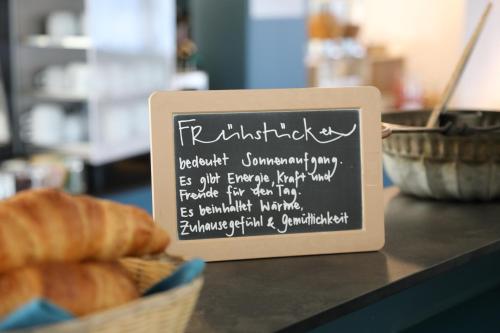 Frühstücken
bedeutet Sonnenaufgang.
Es gibt Energie, Kraft und
Freude für den Tag.
Es beinhaltet Wärme,
Zuhausegefühl & Gemütlichkeit